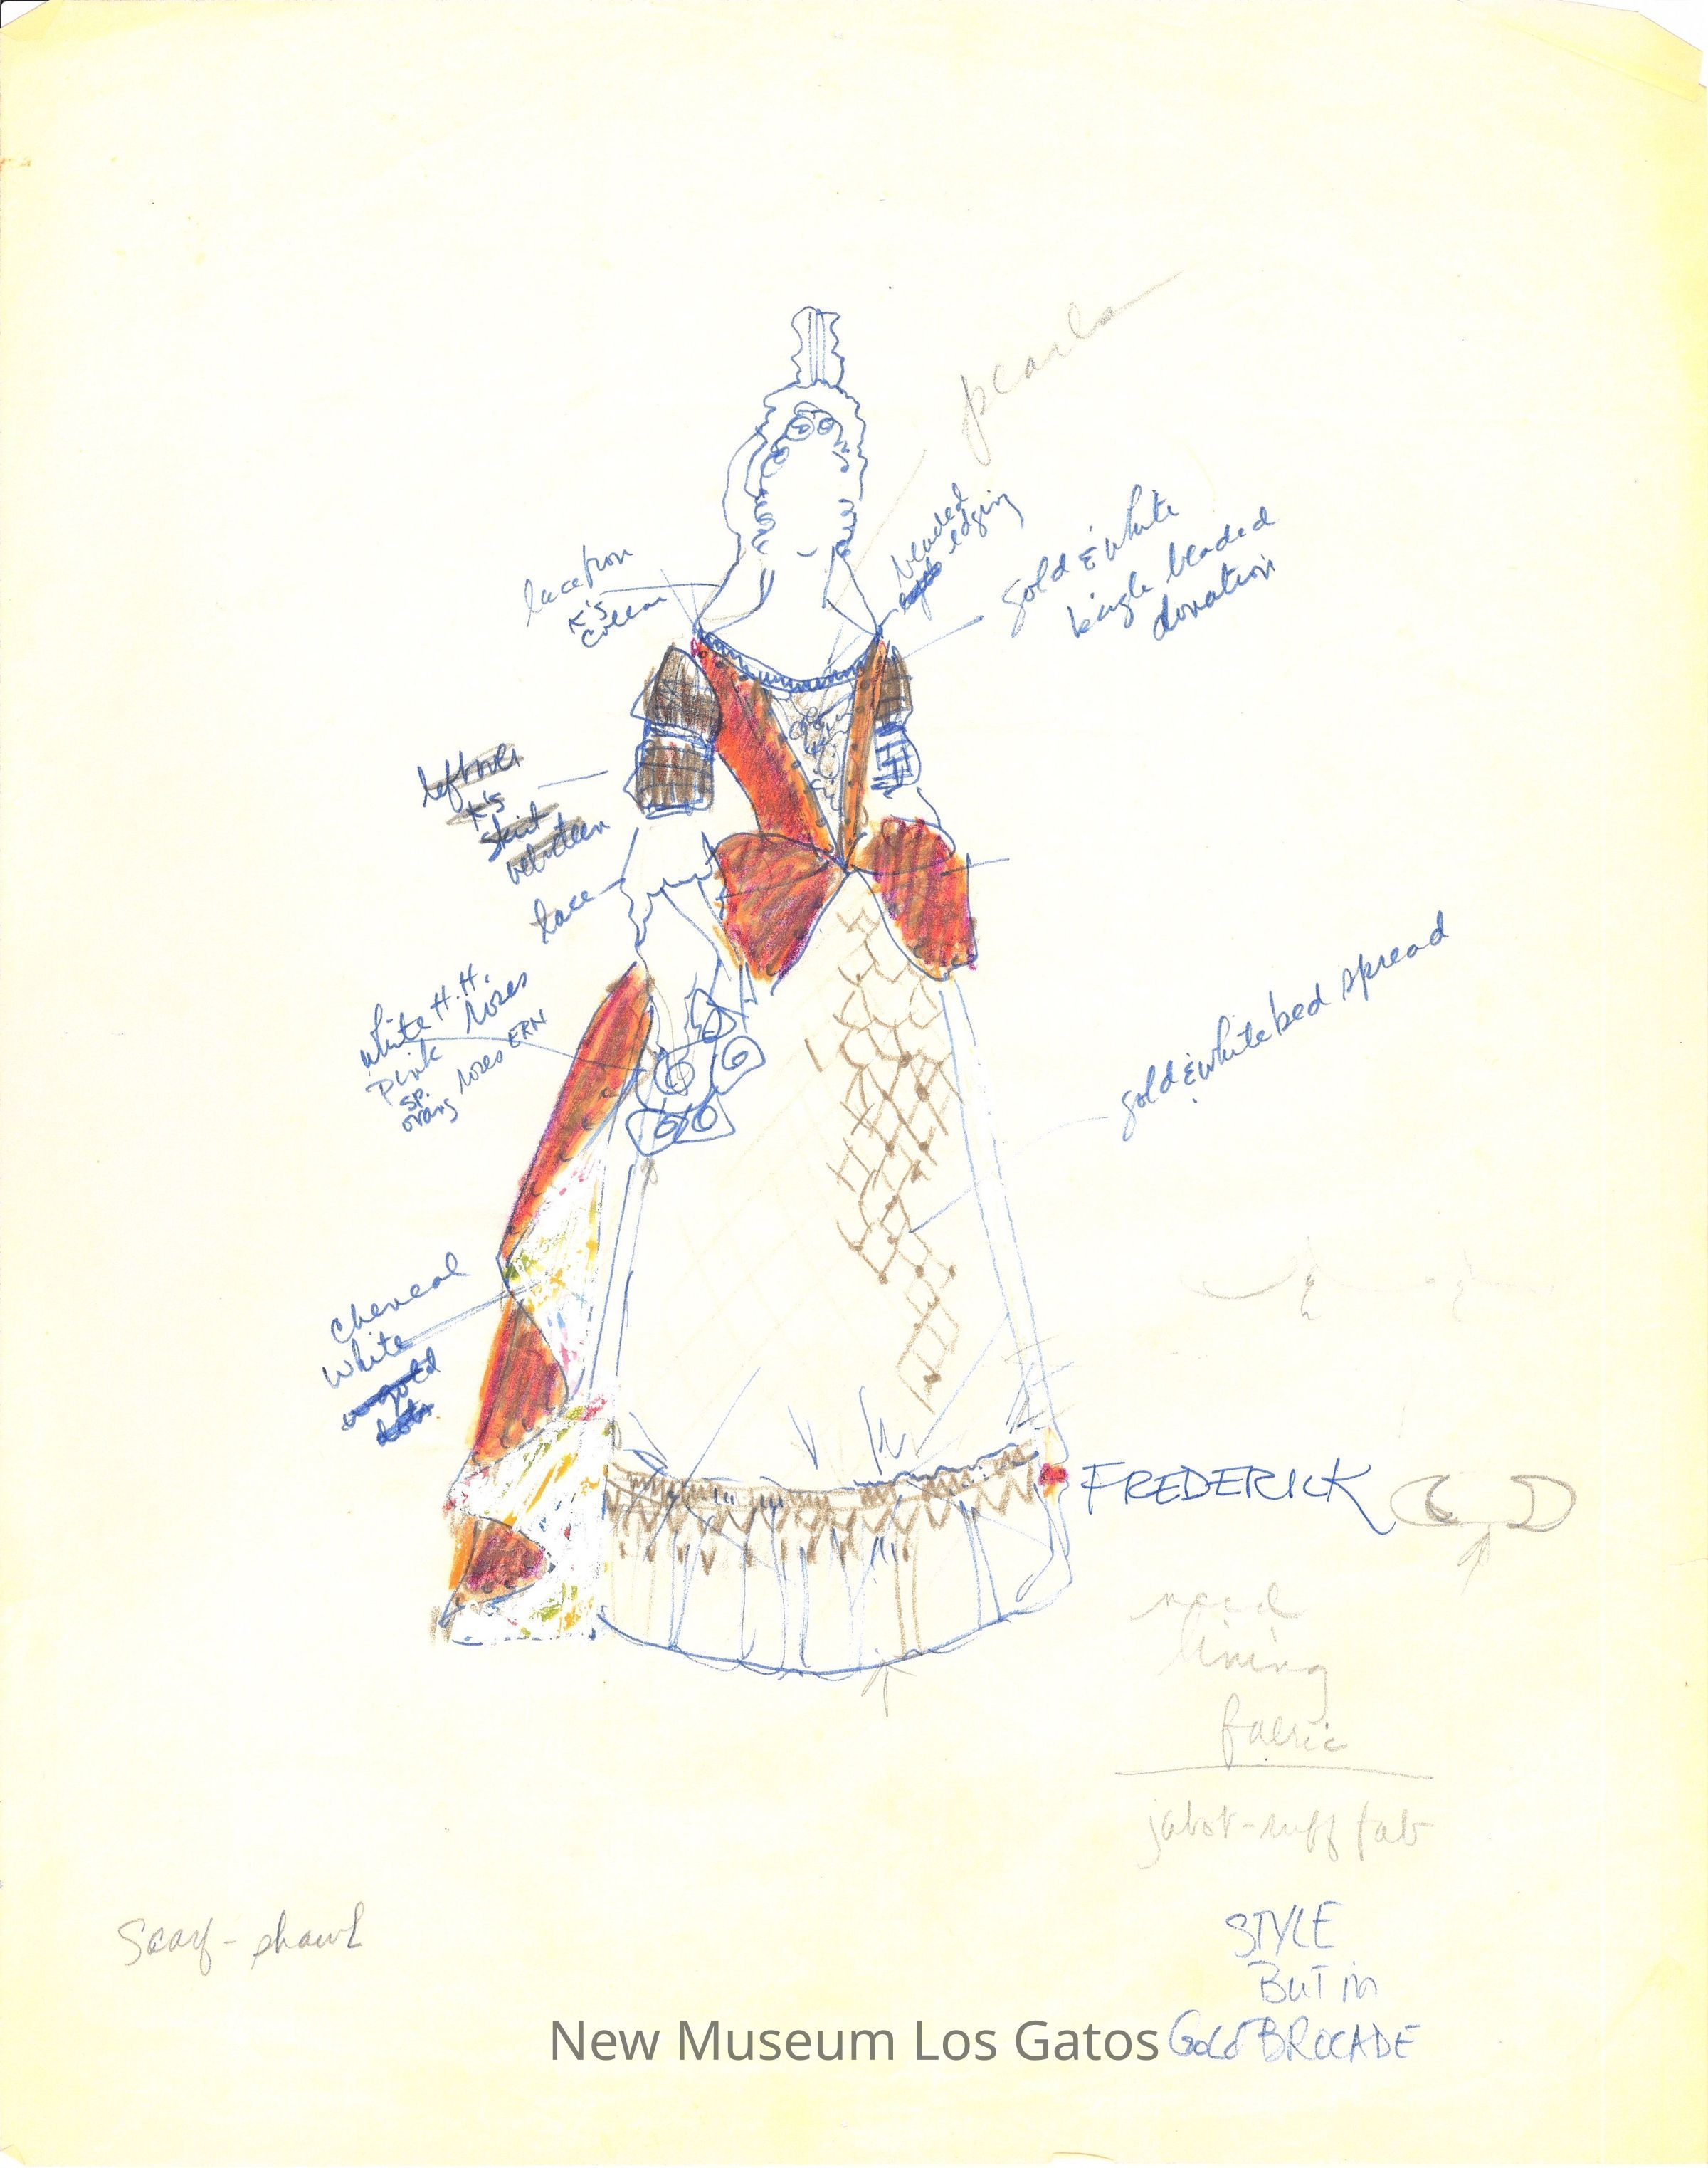 pearls
beaded
edging
gold & white
bugle beaded
donation
K's
collar
leftover
K's
skirt
velveteen
lace
white H.H.
roses
pink
sp.
orang roses ERN
gold & white bed spread
white
gold
dots
FREDERICK
need
lining
fabric
jabot-ruff fab
Scarf-shawl
STYLE
BUT in
GOLD BROCADE
New Museum Los Gatos